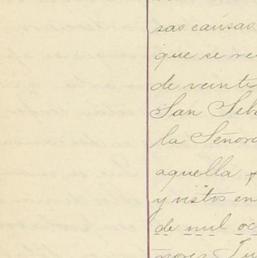 sas causas
que se re
de veinte
San Seba
la Señora
aquella
y vistos en
de mil oc